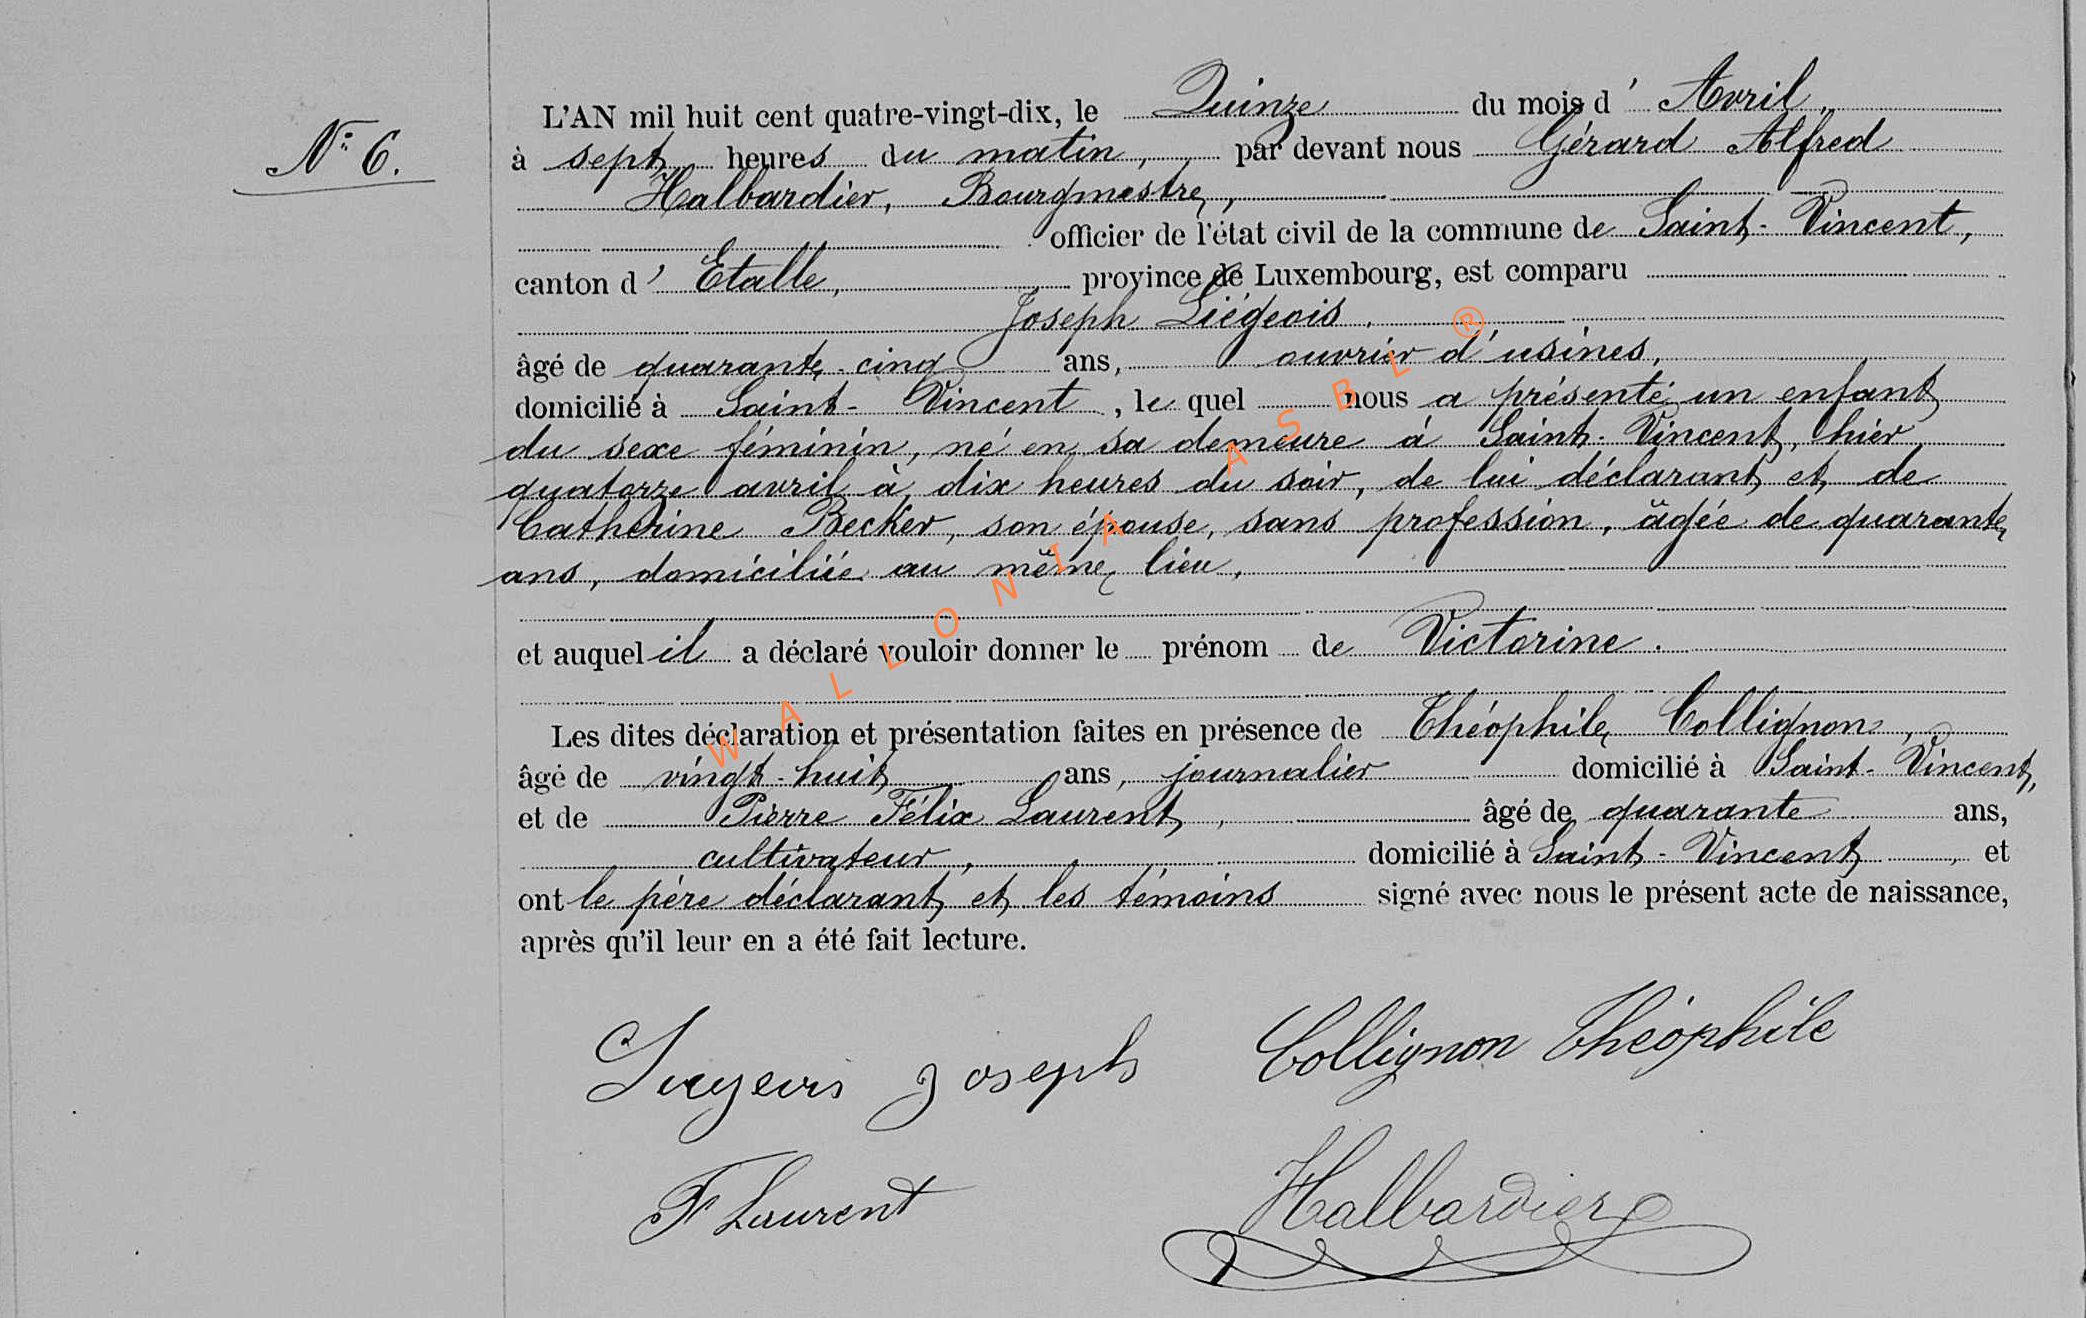 N° 6.
L'AN mil huit cent quatre-vingt-dix, le Quinze du mois d' Avril,
à sept heures du matin, par devant nous Gérard Alfred
Halbardier, Bourgmestre,
officier de l'état civil de la commune de Saint-Vincent,
canton d' Etalle, province de Luxembourg, est comparu
Joseph Liégeois,
âgé de quarante-cinq ans, ouvrier d'usines,
domicilié à Saint-Vincent, le quel nous a présenté un enfant
du sexe féminin, né en sa demeure à Saint-Vincent, hier,
quatorze avril à dix heures du soir, de lui déclarant et de
Catherine Becker, son épouse, sans profession, âgée de quarante
ans, domiciliée au même lieu,
et auquel il a déclaré vouloir donner le prénom de Victorine.
Les dites déclaration et présentation faites en présence de Théophile Collignon,
âgé de vingt-huit ans, journalier domicilié à Saint-Vincent,
et de Pierre Félix Laurent, âgé de quarante ans,
cultivateur, domicilié à Saint-Vincent, et
ont le père déclarant et les témoins signé avec nous le présent acte de naissance,
après qu'il leur en a été fait lecture.
Joseph Collignon Théophile
F Laurent Halbardier
WALLONIA ASBL ®